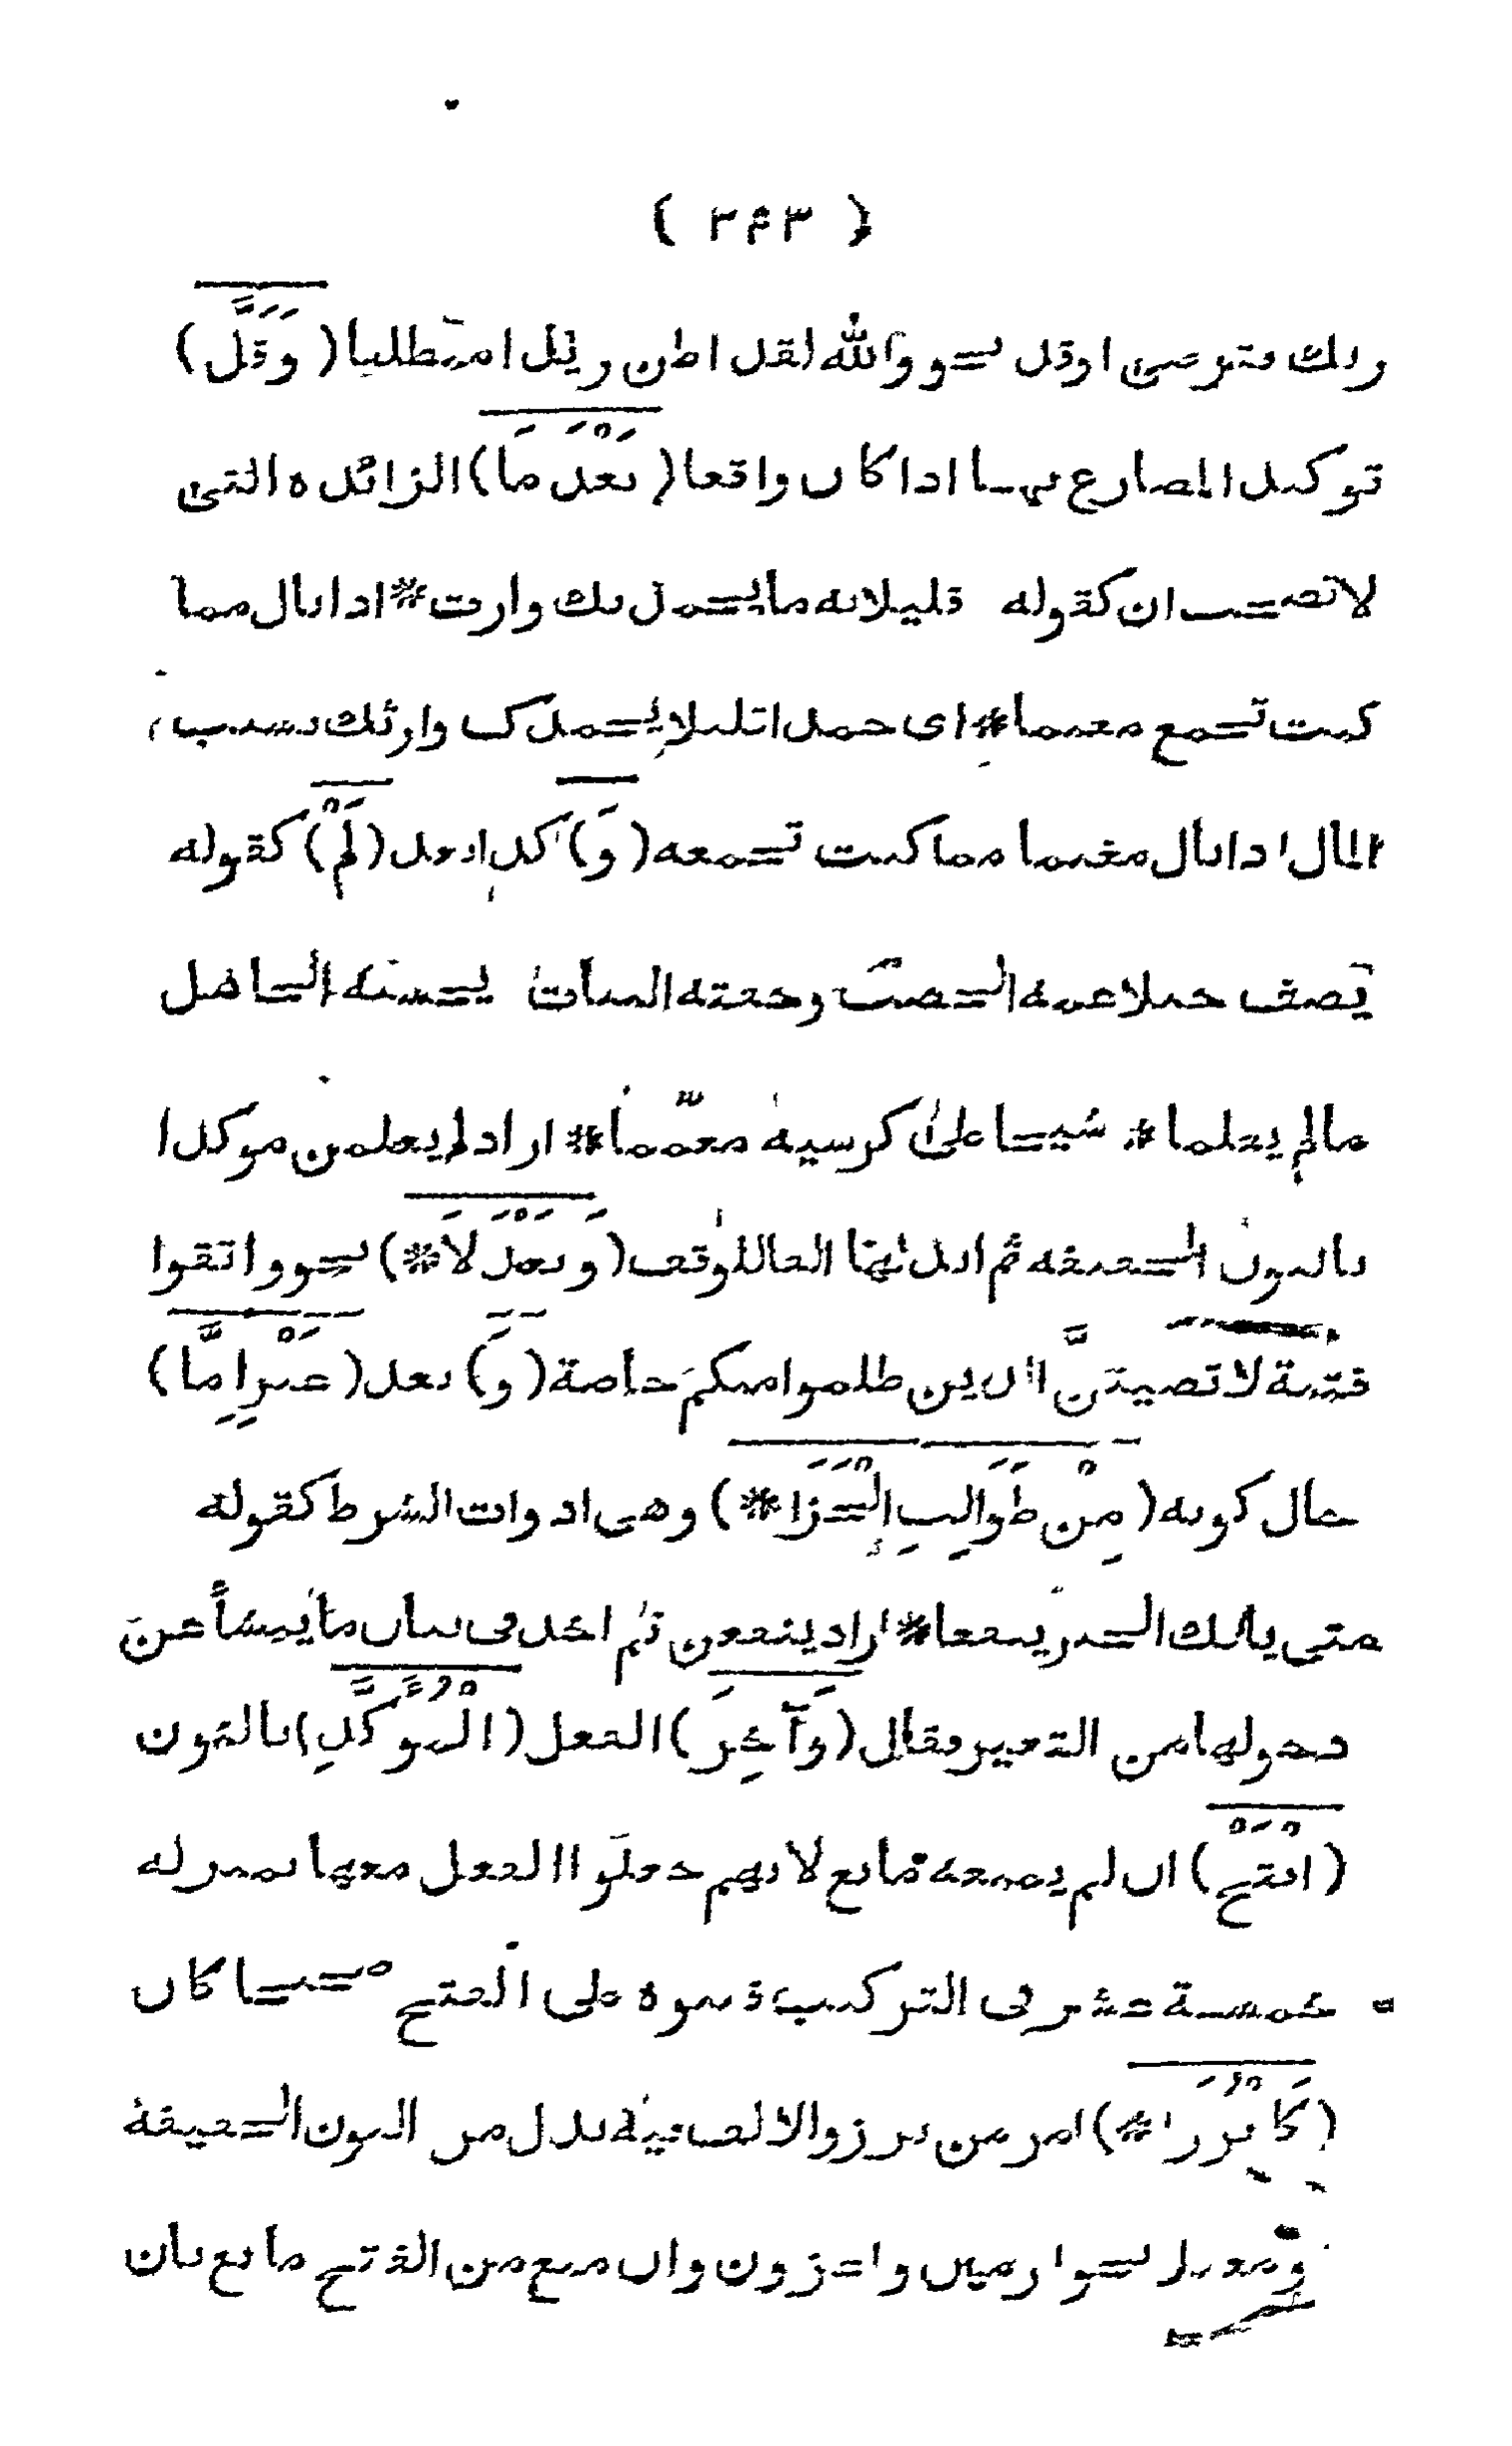 ( ٣٤٣ )
ربك فترضى او قد نحو والله لقد اظن زيدا منطلقا ( وَقَلَّ )
توكيد المضارع بها اذا كان واقعا ( بَعْدَ مَا ) الزائدة التى
لا تصحب ان كقوله قليلا به ما يحمدنك وارث * اذا نال مما
كنت تجمع مغنما * اى حمدا قليلا يحمدك وارثك بسبب
المال اذا نال مغنما مما كنت تجمعه ( وَ ) كذا بعد ( لَمْ ) كقوله
يحسبه الجاهل
ما لم يعلما * شيخا على كرسيه معمّما * اراد لم يعلمن موكدا
بالنون الخفيفة ثم ابدلها الفا للوقف ( وَبَعْدَ لاَ * ) نحو واتقوا
فتنة لا تصيبنّ الذين ظلموا منكم خاصة ( وَ ) بعد ( غَيْرِ إِمَّا )
حال كونه ( مِنْ طَوَالِبِ الْجَزَا * ) وهى ادوات الشرط كقوله
متى يأتك الخير ينفعا * اراد ينفعن ثم اخذ فى بيان ما ينشأ عن
دخولها من التغيير فقال ( وَآخِرَ ) الفعل ( الْمُؤَكَّدِ ) بالنون
( افْتَحْ ) ان لم يمنعه مانع لانهم جعلوا الفعل معها بمنزلة
خمسة عشر فى التركيب فبنوه على الفتح صحيحا كان
( كَابْرُزَا * ) امر من برز والالف مبدل من النون الخفيفة
نحو ارمين واغزون وان منع من الفتح مانع بان